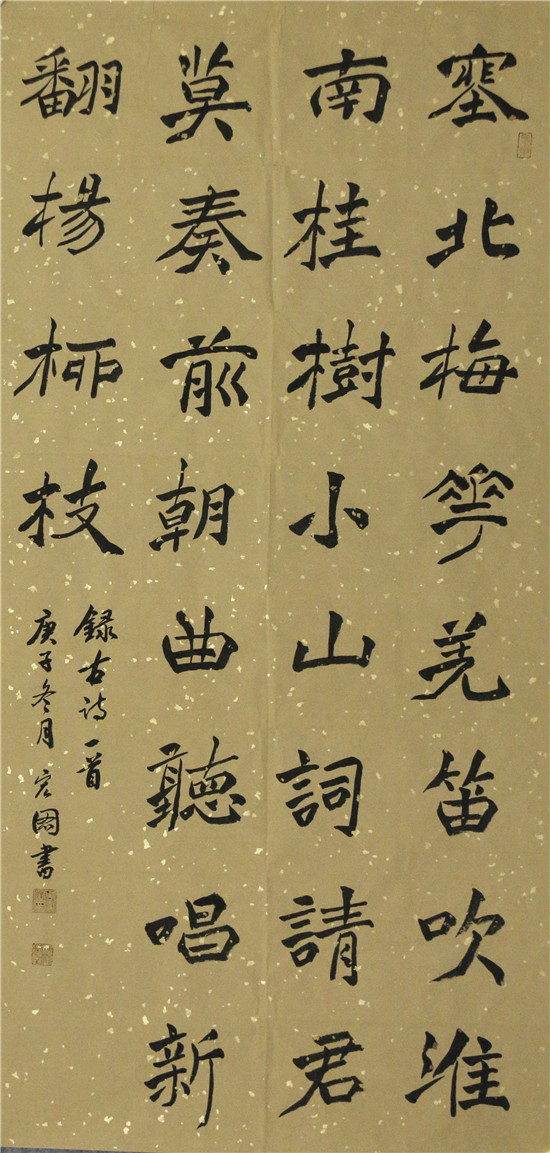 塞北梅華羌笛吹淮
南桂樹小山詞請君
莫奏前朝曲聽唱新
翻楊柳枝
録古詩一首
庚子冬月書